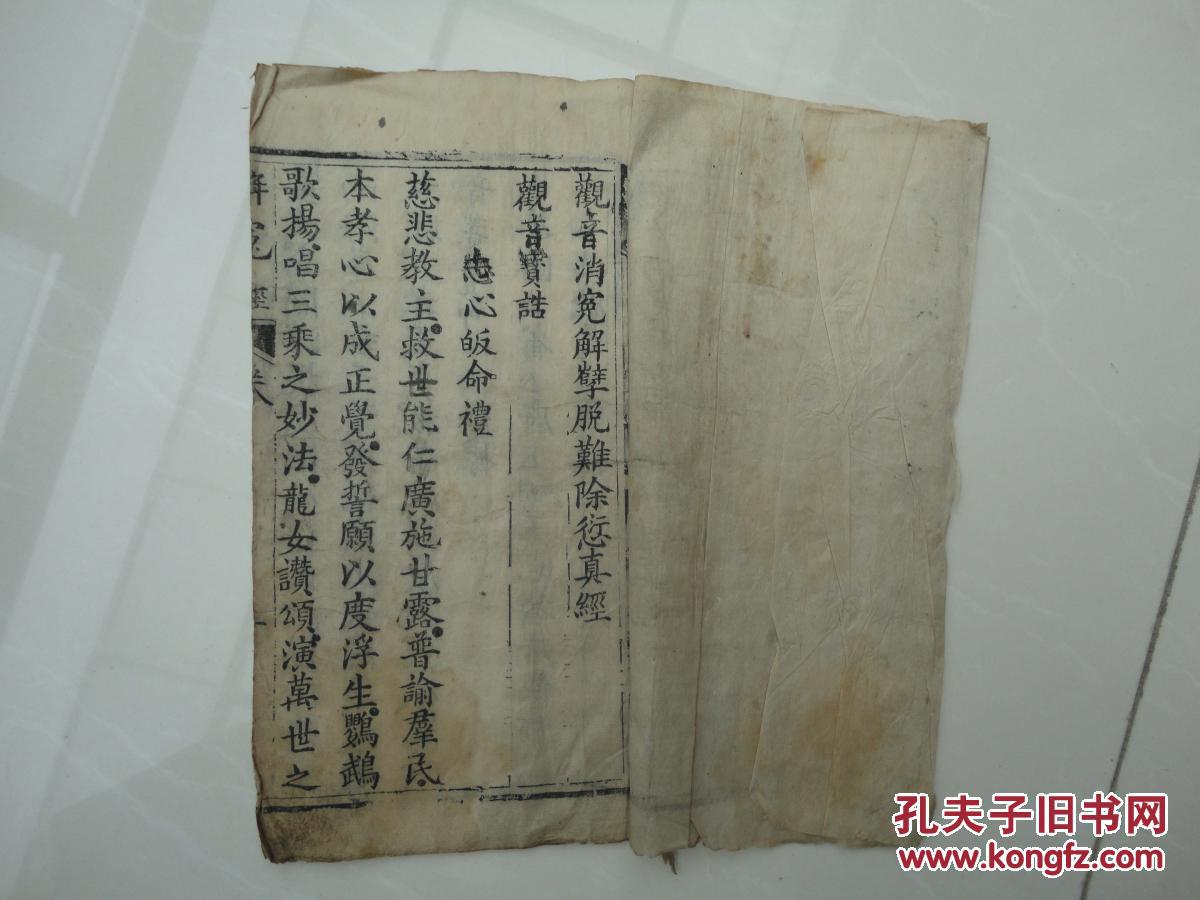 觀音消寃解孽脱難除愆真經
觀音寳誥
志心皈命禮
慈悲教主。救世能仁廣施甘露。普諭羣民。
本孝心以成正覺。發誓願以度浮生。鸚鵡
歌揚。唱三乘之妙法。龍女讚頌。演萬世之
解寃經
一
孔夫子旧书网
www.kongfz.com